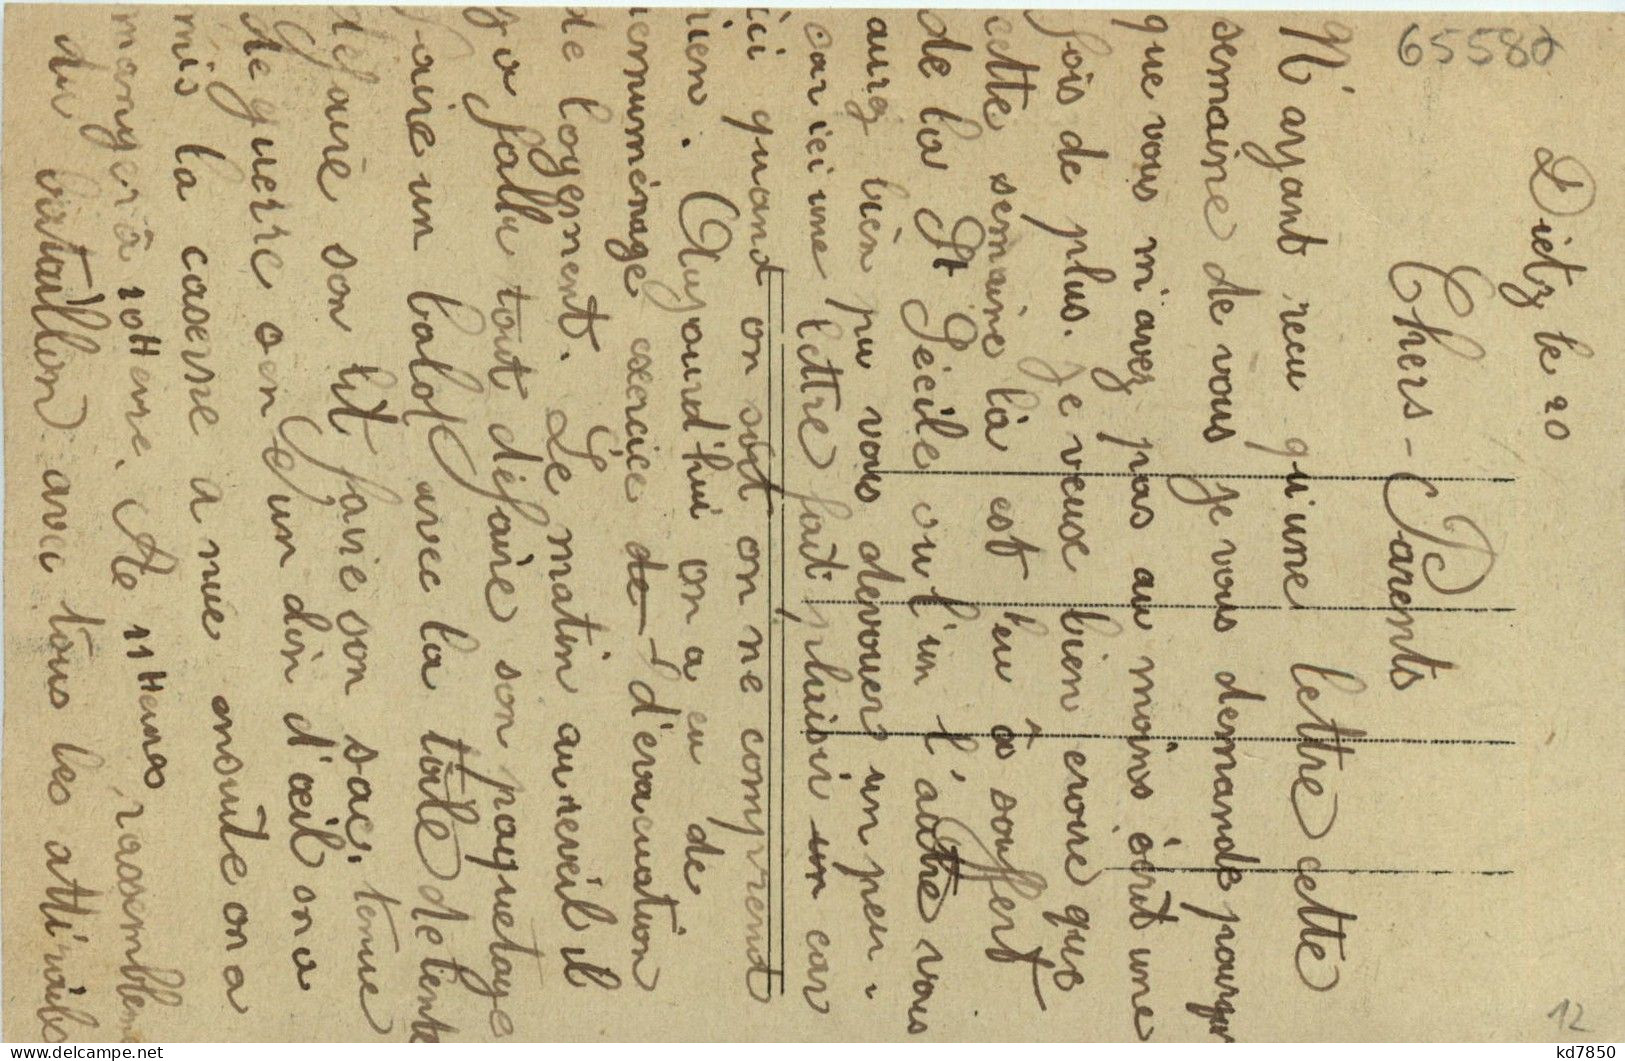 65580
Dietz le 20
Chers-Parents
N'ayant recu qu'une lettre cette
semaine de vous je vous demande pourquoi
que vous m'avez pas au moins écrit une
fois de plus. Je veux bien croire que
cette semaine là est eu â souffert
de la St Sécile ou l'un l'autre vous
aurez bien pu vous devouer un peu
car ici une lettre fait plaisir un car
ici quand on soit on ne comprend
rien. Aujourd'hui on a eu de
emuménage exercice de d'evacuation
de logement. Le matin au reveil il
y a fallu tout défaire son paquetage
faire un balot avec la toile de tente
défaire son lit faire son sac, tenue
de guerre en un clin d'œil on a
mis la caserne a nue ensuite on a
manger â 10 Heure. Ae 11 Heures rassembleme
du bataillon avec tous les attirails
12
kd7850